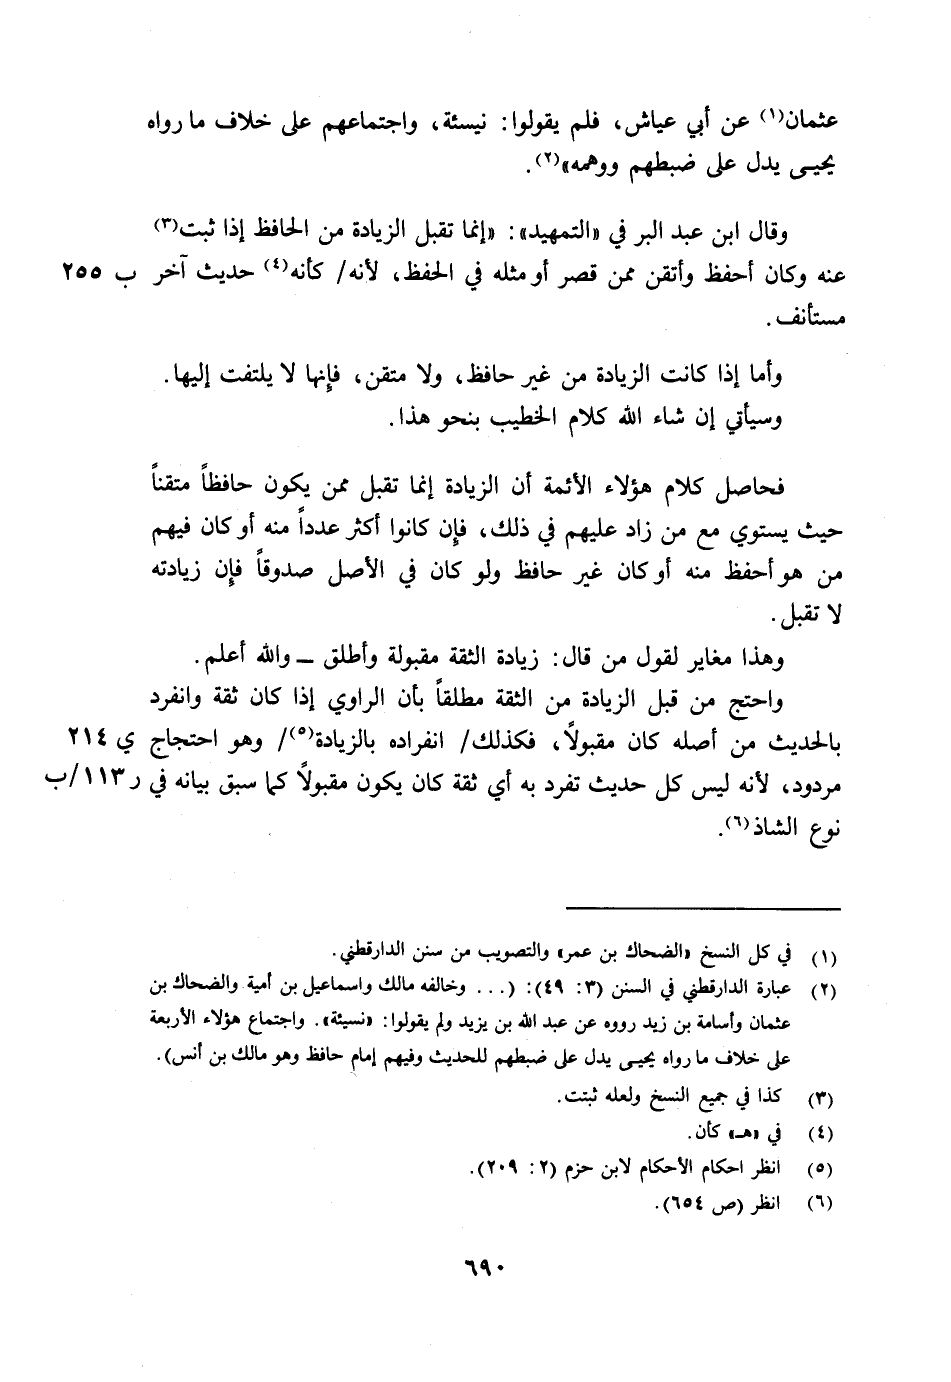 عثمان(١) عن أبي عياش، فلم يقولوا: نيسئة، واجتماعهم على خلاف ما رواه
يحيى يدل على ضبطهم ووهمه»(٢).
وقال ابن عبد البر في «التمهيد»: «إنما تقبل الزيادة من الحافظ إذا ثبت(٣)
عنه وكان أحفظ وأتقن ممن قصر أو مثله في الحفظ، لأنه/ كأنه(٤) حديث آخر ب ٢٥٥
مستأنف.
وأما إذا كانت الزيادة من غير حافظ، ولا متقن، فإنها لا يلتفت إليها.
وسيأتي إن شاء الله كلام الخطيب بنحو هذا.
فحاصل كلام هؤلاء الأئمة أن الزيادة إنما تقبل ممن يكون حافظاً متقناً
حيث يستوي مع من زاد عليهم في ذلك، فإن كانوا أكثر عدداً منه أو كان فيهم
من هو أحفظ منه أو كان غير حافظ ولو كان في الأصل صدوقاً فإن زيادته
لا تقبل.
وهذا مغاير لقول من قال: زيادة الثقة مقبولة وأطلق ــ والله أعلم.
واحتج من قبل الزيادة من الثقة مطلقاً بأن الراوي إذا كان ثقة وانفرد
بالحديث من أصله كان مقبولاً، فكذلك/ انفراده بالزيادة(٥)/ وهو احتجاج ي ٢١٤
مردود، لأنه ليس كل حديث تفرد به أي ثقة كان يكون مقبولاً كما سبق بيانه في ر ١١٣/ب
نوع الشاذ(٦).
(١) في كل النسخ «الضحاك بن عمر» والتصويب من سنن الدارقطني.
(٢) عبارة الدارقطني في السنن (٣: ٤٩): (... وخالفه مالك واسماعيل بن أمية والضحاك بن
عثمان وأسامة بن زيد رووه عن عبد الله بن يزيد ولم يقولوا: «نسيئة». واجتماع هؤلاء الأربعة
على خلاف ما رواه يحيى يدل على ضبطهم للحديث وفيهم إمام حافظ وهو مالك بن أنس).
(٣) كذا في جميع النسخ ولعله ثبتت.
(٤) في «هـ» كأن.
(٥) انظر احكام الأحكام لابن حزم (٢: ٢٠٩).
(٦) انظر (ص ٦٥٤).
٦٩٠